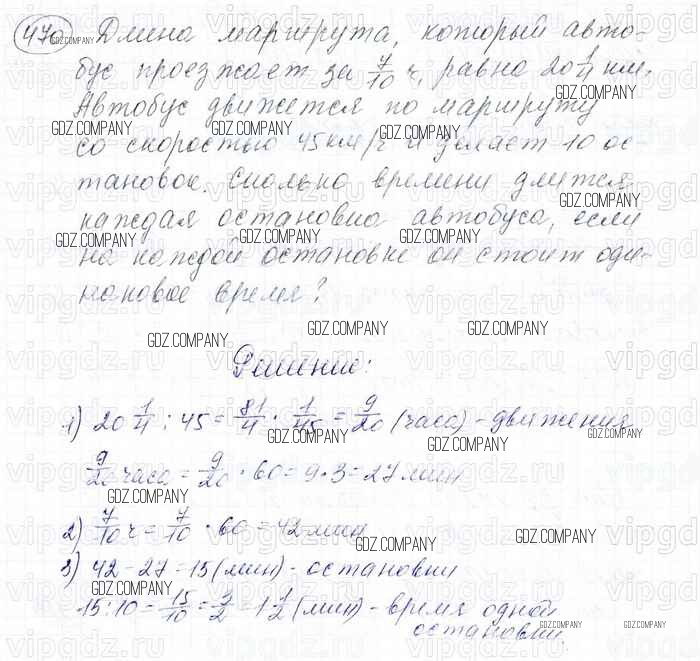 470 Длина маршрута, который авто-
бус проезжает за 7/10 ч, равна 20 1/4 км.
Автобус движется по маршруту
со скоростью 45 км/ч и делает 10 ос-
тановок. Сколько времени длится
каждая остановка автобуса, если
на каждой остановке он стоит оди-
наковое время?
Решение:
1) 20 1/4 : 45 = 81/4 · 1/45 = 9/20 (часа) - движения
9/20 часа = 9/20 · 60 = 9 · 3 = 27 мин
2) 7/10 ч = 7/10 · 60 = 42 мин
3) 42 - 27 = 15 (мин) - остановки
15 : 10 = 15/10 = 3/2 = 1 1/2 (мин) - время одной
остановки.
GDZ.COMPANY
vipgdz.ru